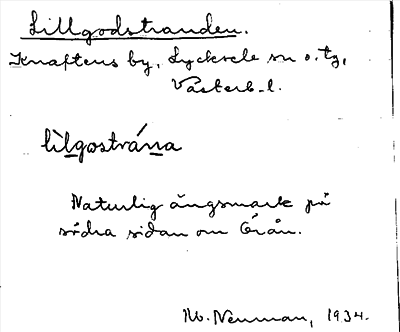 Lillgodstranden.
Knaftens by, Lycksele sn o. tg,
Västerb. l.
lìlgostrána
Naturlig ängsmark på
södra sidan om Örån.
M. Neuman, 1934.